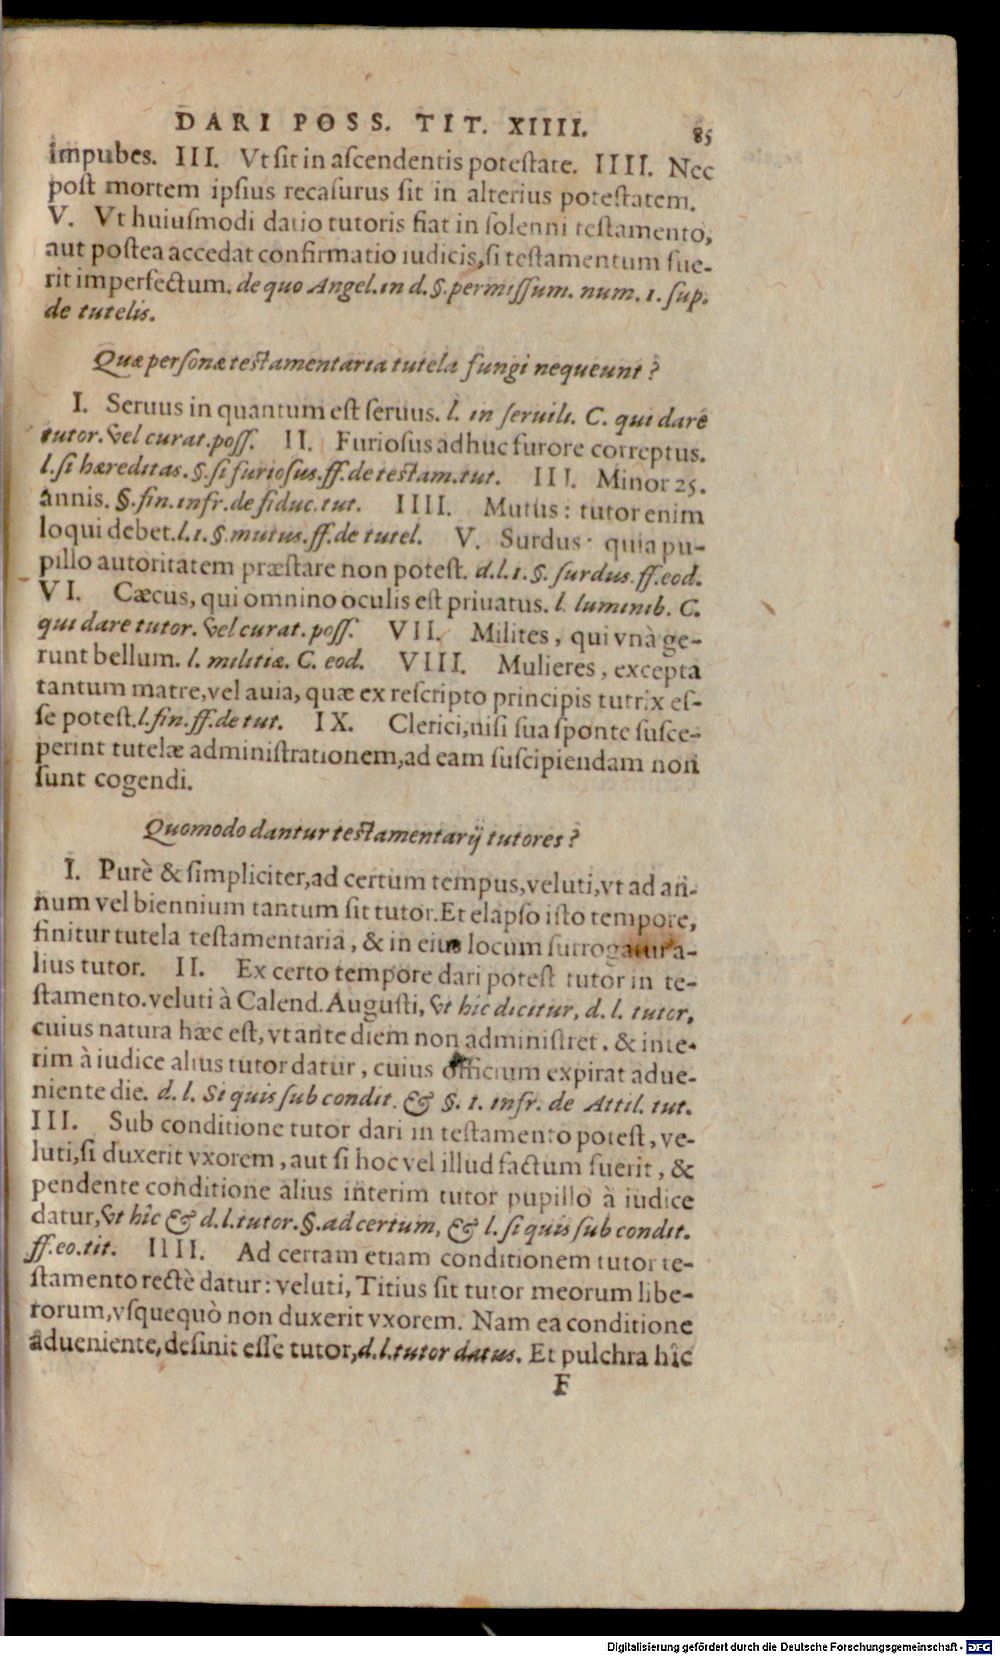 DARI POSS. TIT. XIIII. 85
impubes. III. Vt sit in ascendentis potestate. IIII. Nec
post mortem ipsius recasurus sit in alterius potestatem.
V. Vt huiusmodi datio tutoris fiat in solenni testamento,
aut postea accedat confirmatio iudicis, si testamentum fue-
rit imperfectum. de quo Angel. in d. §. permissum. num. 1. sup.
de tutelis.
Quæ personæ testamentaria tutela fungi nequeunt?
I. Seruus in quantum est seruus. l. in seruili. C. qui dare
tutor. vel curat. poss. II. Furiosus adhuc furore correptus.
l. si hæreditas. §. si furiosus. ff. de testam. tut. III. Minor 25.
annis. §. fin. infr. de fiduc. tut. IIII. Mutus: tutor enim
loqui debet. l. 1. §. mutus. ff. de tutel. V. Surdus: quia pu-
pillo autoritatem præstare non potest. d. l. 1. §. surdus. ff. eod.
VI. Cæcus, qui omnino oculis est priuatus. l. luminib. C.
qui dare tutor. vel curat. poss. VII. Milites, qui vnà ge-
runt bellum. l. militiæ. C. eod. VIII. Mulieres, excepta
tantum matre, vel auia, quæ ex rescripto principis tutrix es-
se potest. l. fin. ff. de tut. IX. Clerici, nisi sua sponte susce-
perint tutelæ administrationem, ad eam suscipiendam non
sunt cogendi.
Quomodo dantur testamentarij tutores?
I. Purè & simpliciter, ad certum tempus, veluti, vt ad an-
num vel biennium tantum sit tutor. Et elapso isto tempore,
finitur tutela testamentaria, & in eius locum surrogatur a-
lius tutor. II. Ex certo tempore dari potest tutor in te-
stamento. veluti à Calend. Augusti, vt hic dicitur, d. l. tutor,
cuius natura hæc est, vt ante diem non administret, & inte-
rim à iudice alius tutor datur, cuius officium expirat adue-
niente die. d. l. Si quis sub condit. & §. 1. infr. de Attil. tut.
III. Sub conditione tutor dari in testamento potest, ve-
luti, si duxerit vxorem, aut si hoc vel illud factum fuerit, &
pendente conditione alius interim tutor pupillo à iudice
datur, vt hîc & d. l. tutor. §. ad certum, & l. si quis sub condit.
ff. eo. tit. IIII. Ad certam etiam conditionem tutor te-
stamento rectè datur: veluti, Titius sit tutor meorum libe-
rorum, vsquequò non duxerit vxorem. Nam ea conditione
adueniente, desinit esse tutor, d. l. tutor datus. Et pulchra hîc
F
Digitalisierung gefördert durch die Deutsche Forschungsgemeinschaft - DFG